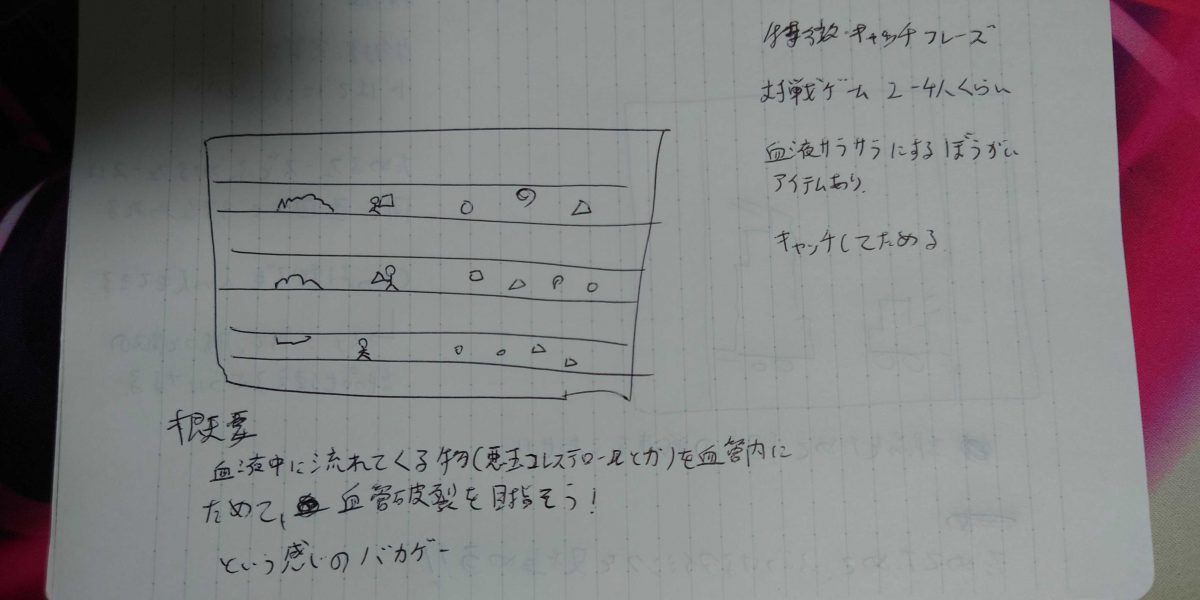 特徴・キャッチフレーズ
対戦ゲーム 2-4人くらい
血液サラサラにするぼうがい
アイテムあり.
キャッチしてためる
概要
血液中に流れてくる物(悪玉コレステロールとか)を血管内に
ためて、血管破裂を目指そう!
という感じのバカゲー